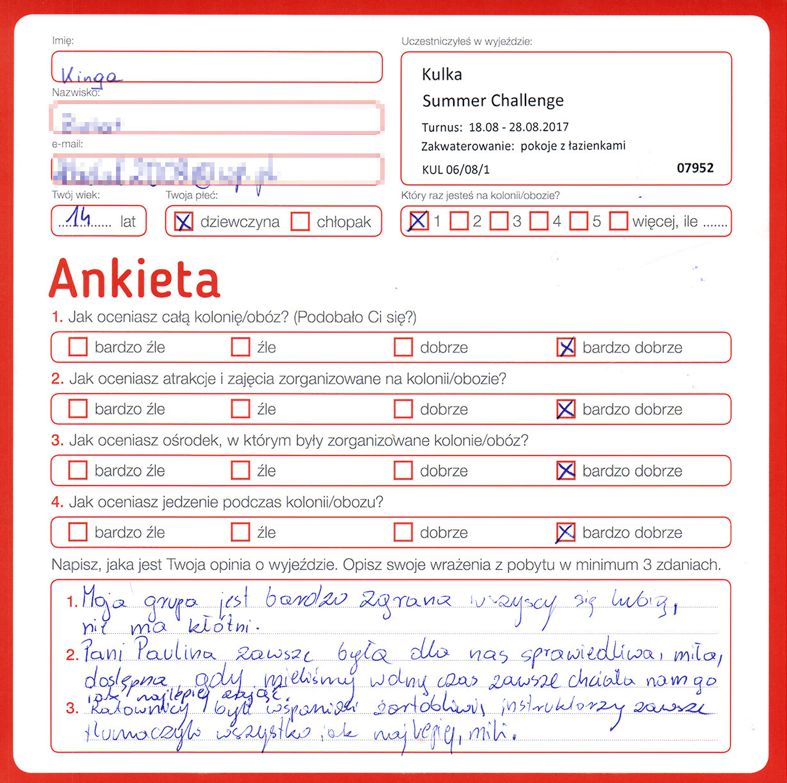 Imię:
Kinga
Nazwisko:
e-mail:
Twój wiek:
14 lat
Twoja płeć:
dziewczyna chłopak
Uczestniczyłeś w wyjeździe:
Kulka
Summer Challenge
Turnus: 18.08 - 28.08.2017
Zakwaterowanie: pokoje z łazienkami
KUL 06/08/1 07952
Który raz jesteś na kolonii/obozie?
1 2 3 4 5 więcej, ile .......
Ankieta
1. Jak oceniasz całą kolonię/obóz? (Podobało Ci się?)
bardzo źle źle dobrze bardzo dobrze
2. Jak oceniasz atrakcje i zajęcia zorganizowane na kolonii/obozie?
bardzo źle źle dobrze bardzo dobrze
3. Jak oceniasz ośrodek, w którym były zorganizowane kolonie/obóz?
bardzo źle źle dobrze bardzo dobrze
4. Jak oceniasz jedzenie podczas kolonii/obozu?
bardzo źle źle dobrze bardzo dobrze
Napisz, jaka jest Twoja opinia o wyjeździe. Opisz swoje wrażenia z pobytu w minimum 3 zdaniach.
1. Moja grupa jest bardzo zgrana wszyscy się lubią,
nie ma kłótni.
2. Pani Paulina zawsze była dla nas sprawiedliwa, miła,
dostępna, gdy mieliśmy wolny czas zawsze chciała nam go
jak najlepiej zająć.
3. Ratownicy byli wspaniali żartobliwi, instruktorzy zawsze
tłumaczyli wszystko jak najlepiej, mili.